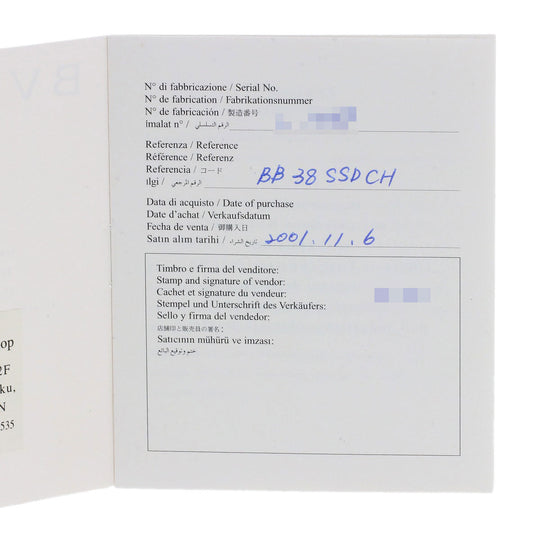 BV
op
2F
ku,
N
535
N° di fabbricazione / Serial No.
N° de fabrication / Fabrikationsnummer
N° de fabricación / 製造番号
imalat n° / الرقم التسلسلي
Referenza / Reference
Référence / Referenz
Referencia / コード
ılgi / الرقم المرجعي BB 38 SSD CH
Data di acquisto / Date of purchase
Date d'achat / Verkaufsdatum
Fecha de venta / 御購入日
Satın alim tarihi / تاريخ الشراء 2001.11.6
Timbro e firma del venditore:
Stamp and signature of vendor:
Cachet et signature du vendeur:
Stempel und Unterschrift des Verkäufers:
Sello y firma del vendedor:
店舗印と販売員の署名:
Satıcının mühürü ve imzası:
ختم وتوقيع البائع